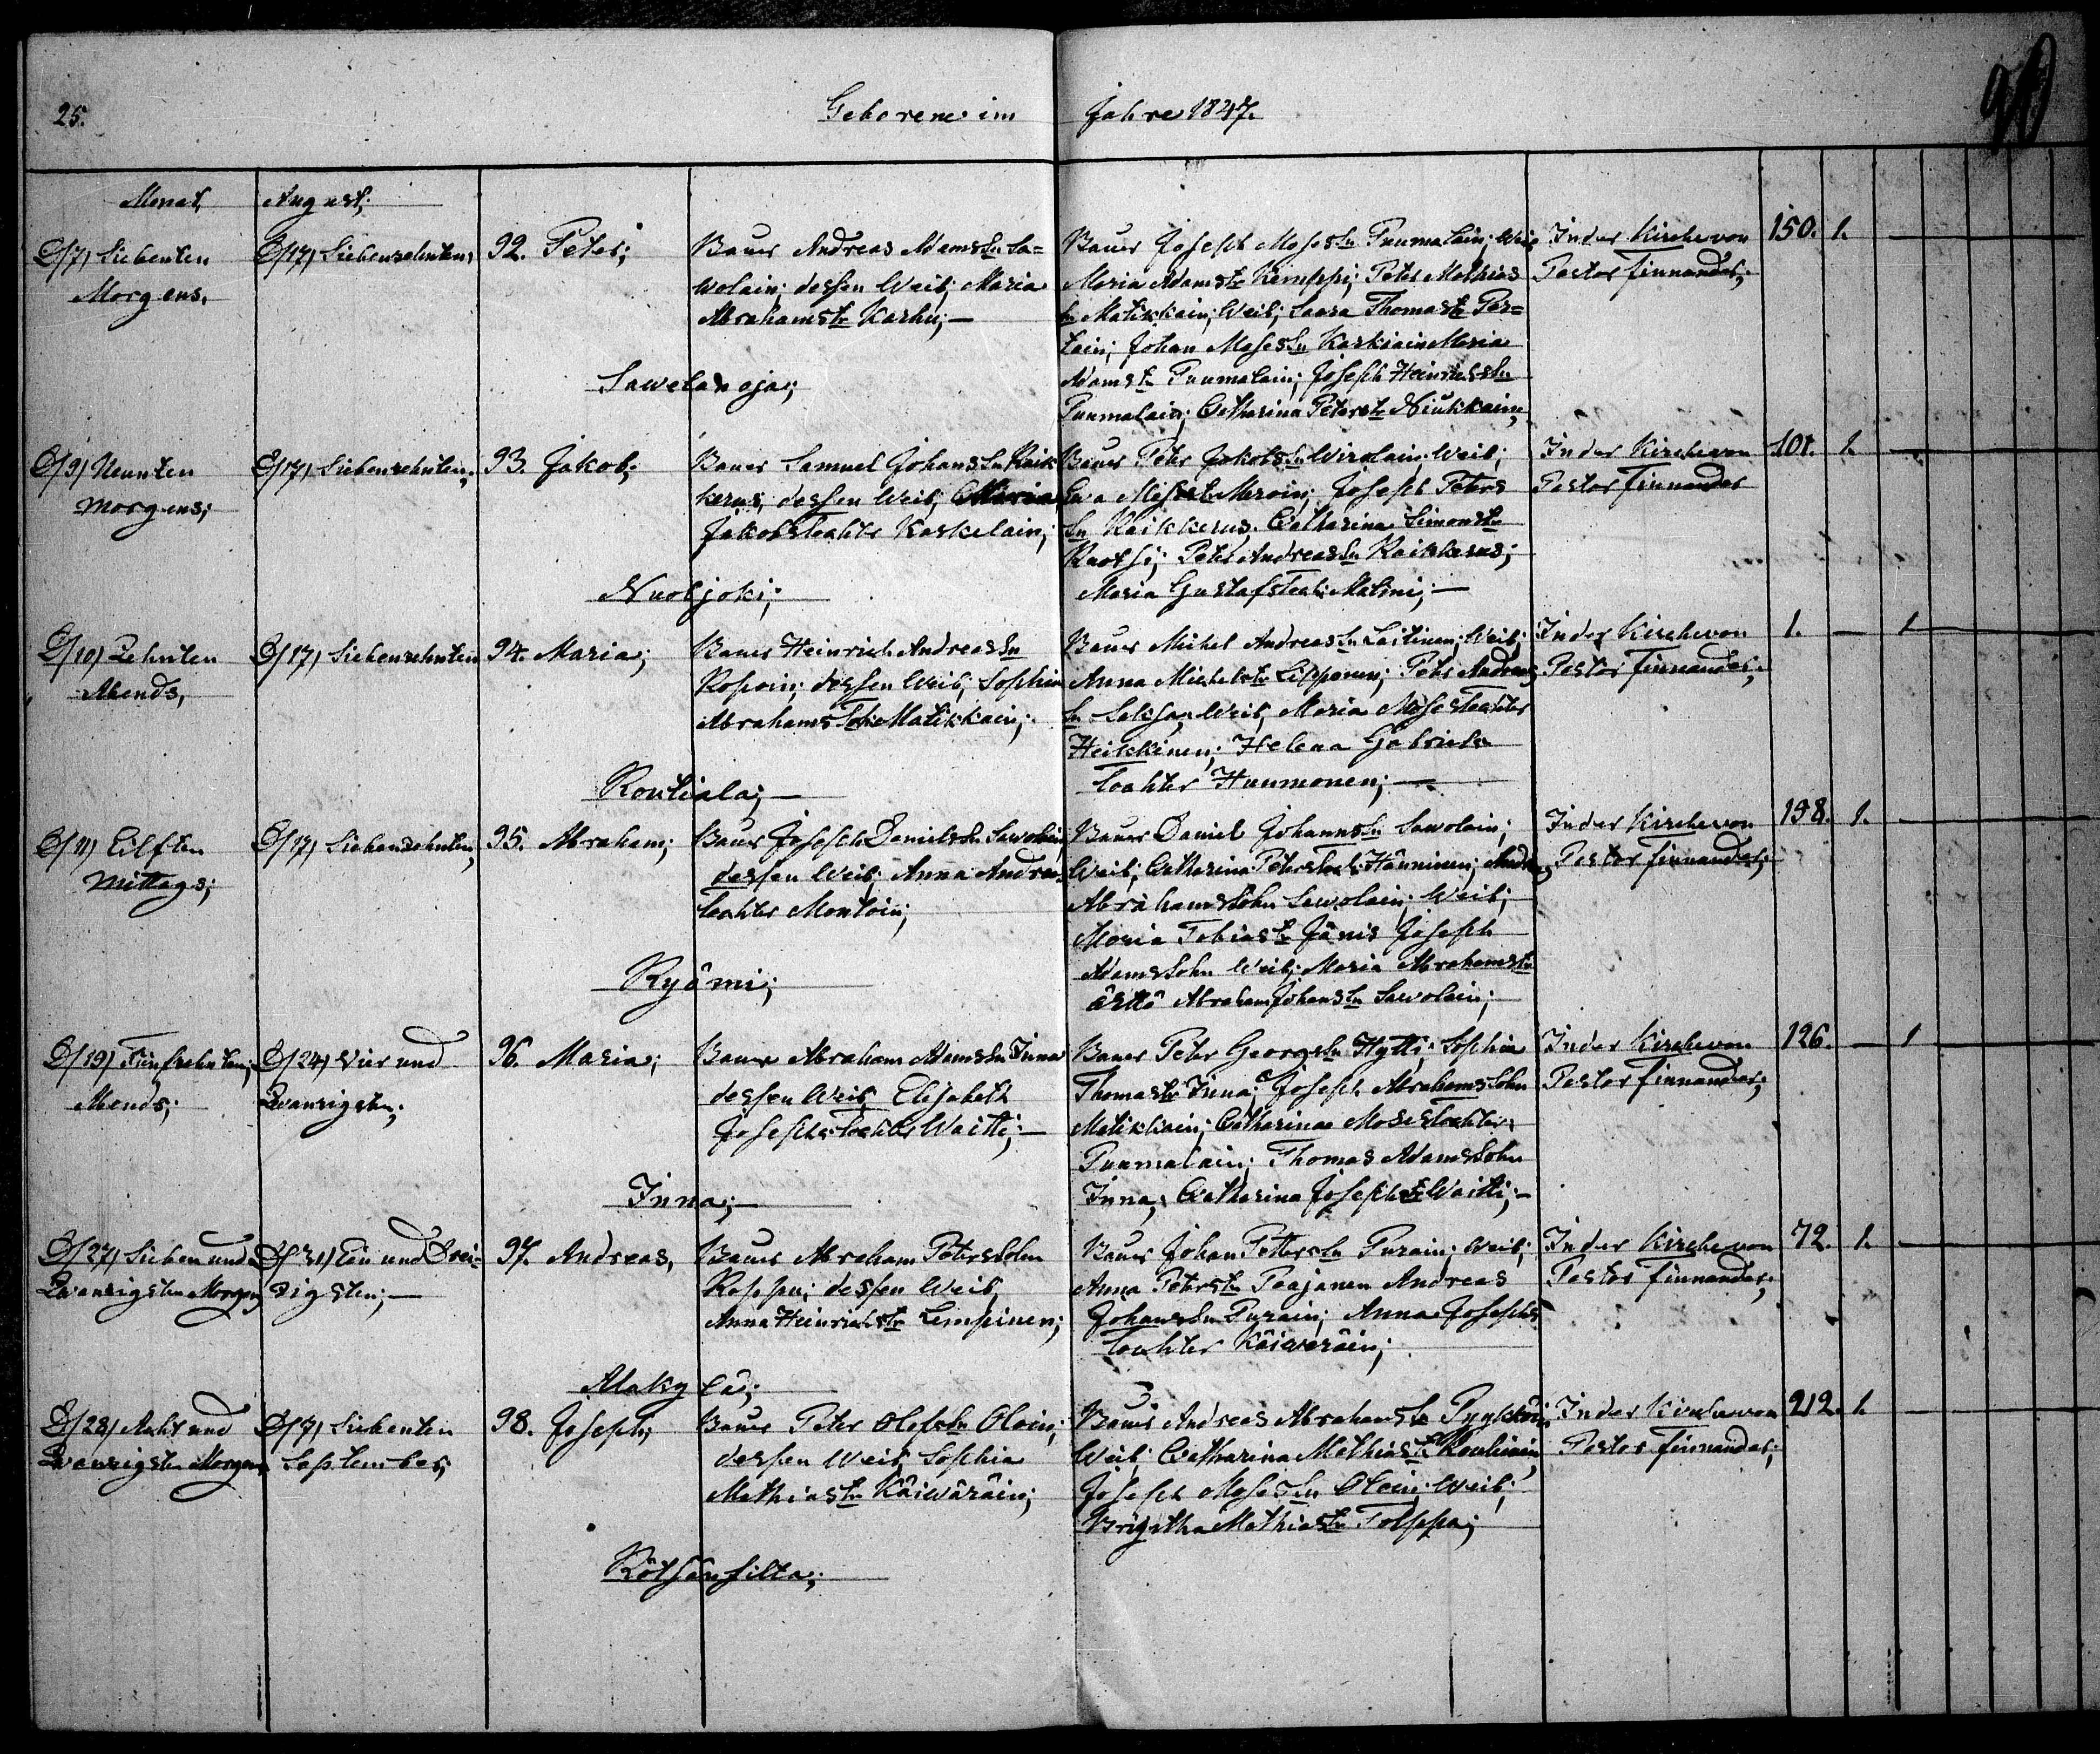 25. Geborene im Jahre 1847. 90
Monat, August;
D/7) Siebenten
Morgens,
D/17) Siebenzehnten,
92. Peter;
Bauer Andreas Adams Sn Sa=
wolain; dessen Weib; Maria
Abrahamstr Karhu;—
Sawelanoja;
Bauer Joseph Moses Sn Puumalain; Weib
Maria Adamstr Kemppi; Peter Mathias
Sn Matikkain; Weib; Saara Thomastr Par=
tain; Johan Moses Sn Karkiain Maria
Adamstr Puumalain; Joseph Heinrichs Sn
Puumalain; Catharina Peterstr Niukkain,
In der Kirche von
Pastor Finnander;
150. 1. —
D/9) Neunten
Morgens;
D/17) Siebenzehnten;
93. Jakob;
Bauer Samuel Johans Sn Raik
kerus; dessen Weib; Maria
Jakobstochtr Kaskelain;
Nuoljoki;
Bauer Peter Jakobs Sn Wirolain; Weib;
Ewa Mosestr Meroin; Joseph Peters
Sn Raikkerus; Catharina Simonstr
Ruotsi; Peter Andreas Sn Raikkerus;
Maria Gustafstocht: Matini;—
In der Kirche von
Pastor Finnander
101. 1. —
D/10) Zehnten
Abends,
D/17) Siebenzehnten
94. Maria;
Bauer Heinrich Andreas Sn
Ropoin; dessen Weib; Sophia
Abrahams Toh: Matikkain;
Routiala;—
Bauer Michel Andreas Sn Laitinen; Weib;
Anna Michelstr Lipponen; Peter Andreas
Sn Seksa; Weib; Maria Mosestochter
Heikkinen; Helena Gabriels
tochter Huumonen;—
In der Kirche von
Pastor Finnander;
1. — 1
D/11) Eilften
Mittags;
D/17) Siebenzehnten,
95. Abraham;
Bauer Joseph Daniels Sn Sawolain;
dessen Weib; Anna Andreas
tochter Montoin;
Ryömi;
Bauer Daniel Johanns Sn Sawolain;
Weib; Catharina Peterstoch: Hänninen; Andreas
Abrahams Sohn Sawolain; Weib;
Maria Tobiastr Jänis Joseph
Adams Sohn Weib; Maria Abrahamstr
Ärttö Abraham Johans Sn Sawolain;
In der Kirche von
Pastor Finnander;
198. 1.
D/19) Neunzehnten;
Abends;
D/24) Vier und
Zwanzigsten;
96. Maria;
Bauer Abraham Adams Sn Inna
dessen Weib; Elisabeth
Josephs tochter Waitti;—
Inna;—
Bauer Peter Georgs Sn Hytti; Sophia
Thomastr Inna; Joseph Abrahams Sohn
Matikkain; Catharina Mosestochter
Puumalain; Thomas Adams Sohn
Inna; Catharina Josephstr Waitti;—
In der Kirche von
Pastor Finnander;
126. — 1
D/27) Sieben und
Zwanzigsten Morgens
D/31) Ein und Drei=
zigsten;—
97. Andreas,
Bauer Abraham Peters Sohn
Roppu; dessen Weib;
Anna Heinrichstr Lempinen;
Alakylä;
Bauer Johan Peters Sn Purain; Weib;
Anna Peterstr Paajanen Andreas
Johans Sn Purain; Anna Josephs
tochter Käiweräin;
In der Kirche von
Pastor Finnander,
72. 1. —
D/28) Acht und
Zwanzigsten Morgens
D/7) Siebenten
September;
98. Joseph;
Bauer Peter Olofs Sn Oloin;
dessen Weib; Sophia
Mathiastr Käiwäräin;
Rötsänsilta;
Bauer Andreas Abrahams Sn Pyykköin
Weib; Catharina Mathiastr
Joseph Moses Sn Oloin; Weib;
Brigitha Mathiastr Tolppa;
In der Kirche von
Pastor Finnander;
212. 1. —